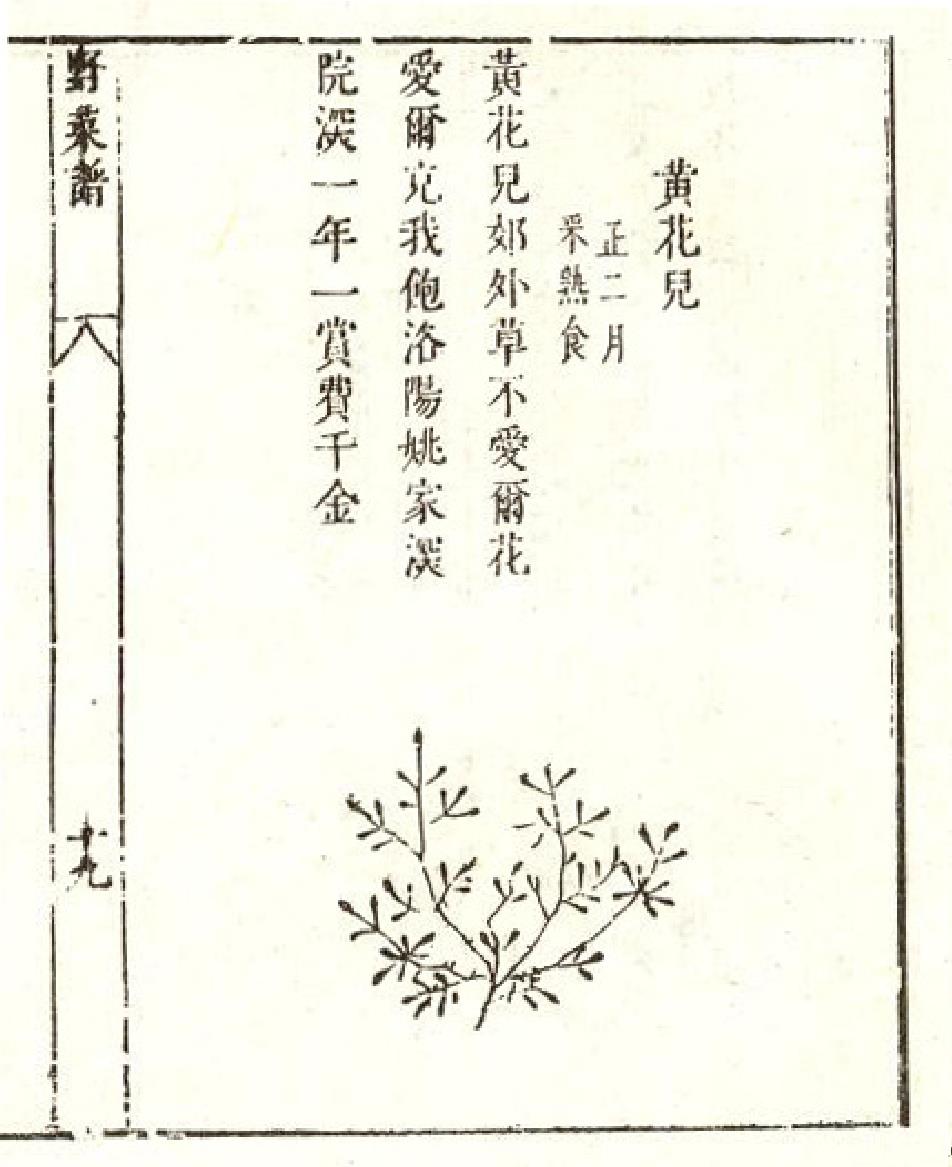 黃花兒
正二月
采熟食
黃花兒郊外草不愛爾花
愛爾充我飽洛陽姚家深
院深一年一賞費千金
野菜譜
十九